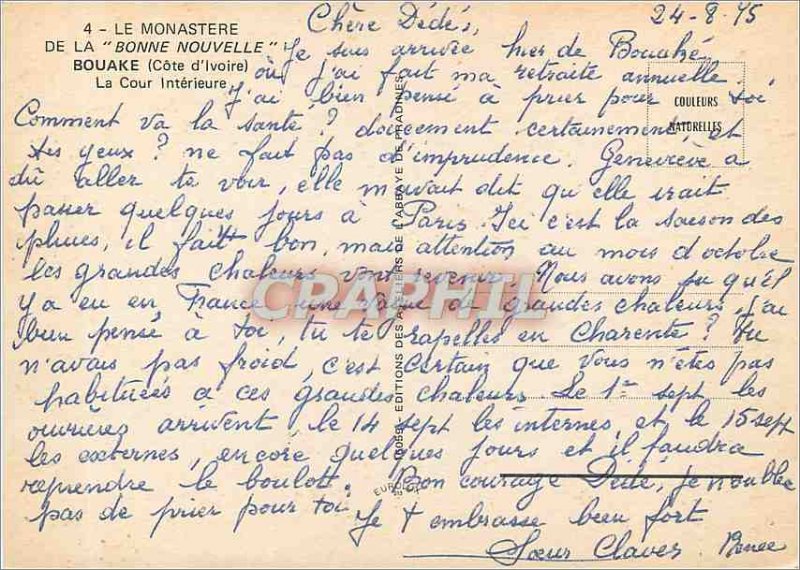 4 - LE MONASTERE
DE LA "BONNE NOUVELLE"
BOUAKE (Côte d'Ivoire)
La Cour Intérieure
24-8-75
Chère Dédé,
Je suis arrivée hier de Bouaké
où j'ai fait ma retraite annuelle.
J'ai bien pensé à prier pour toi
Comment va la santé ? doucement certainement, et
tes yeux ? ne fait pas d'imprudence. Geneviève a
dû aller te voir, elle m'avait dit qu'elle irait
passer quelques jours à Paris. Ici c'est la saison des
pluies, il fait bon, mais attention au mois d'octobre
les grandes chaleurs vont revenir. Nous avons su qu'il
y a eu en France une vague de grandes chaleurs, j'ai
bien pensé à toi, tu te rapelles en Charente ? Tu
n'avais pas froid, c'est certain que vous n'êtes pas
habituées à ces grandes chaleurs. Le 1er sept les
ouvrières arrivent, le 14 sept les internes, et le 15 sept
les externes, encore quelques jours et il faudra
reprendre le boulot. Bon courage Dédé, je n'oublie
pas de prier pour toi. Je t embrasse bien fort
Soeur Claver Renée
COULEURS
NATURELLES
EDITIONS DES ATELIERS DE L'ABBAYE DE PRADINES
CRAPHIL